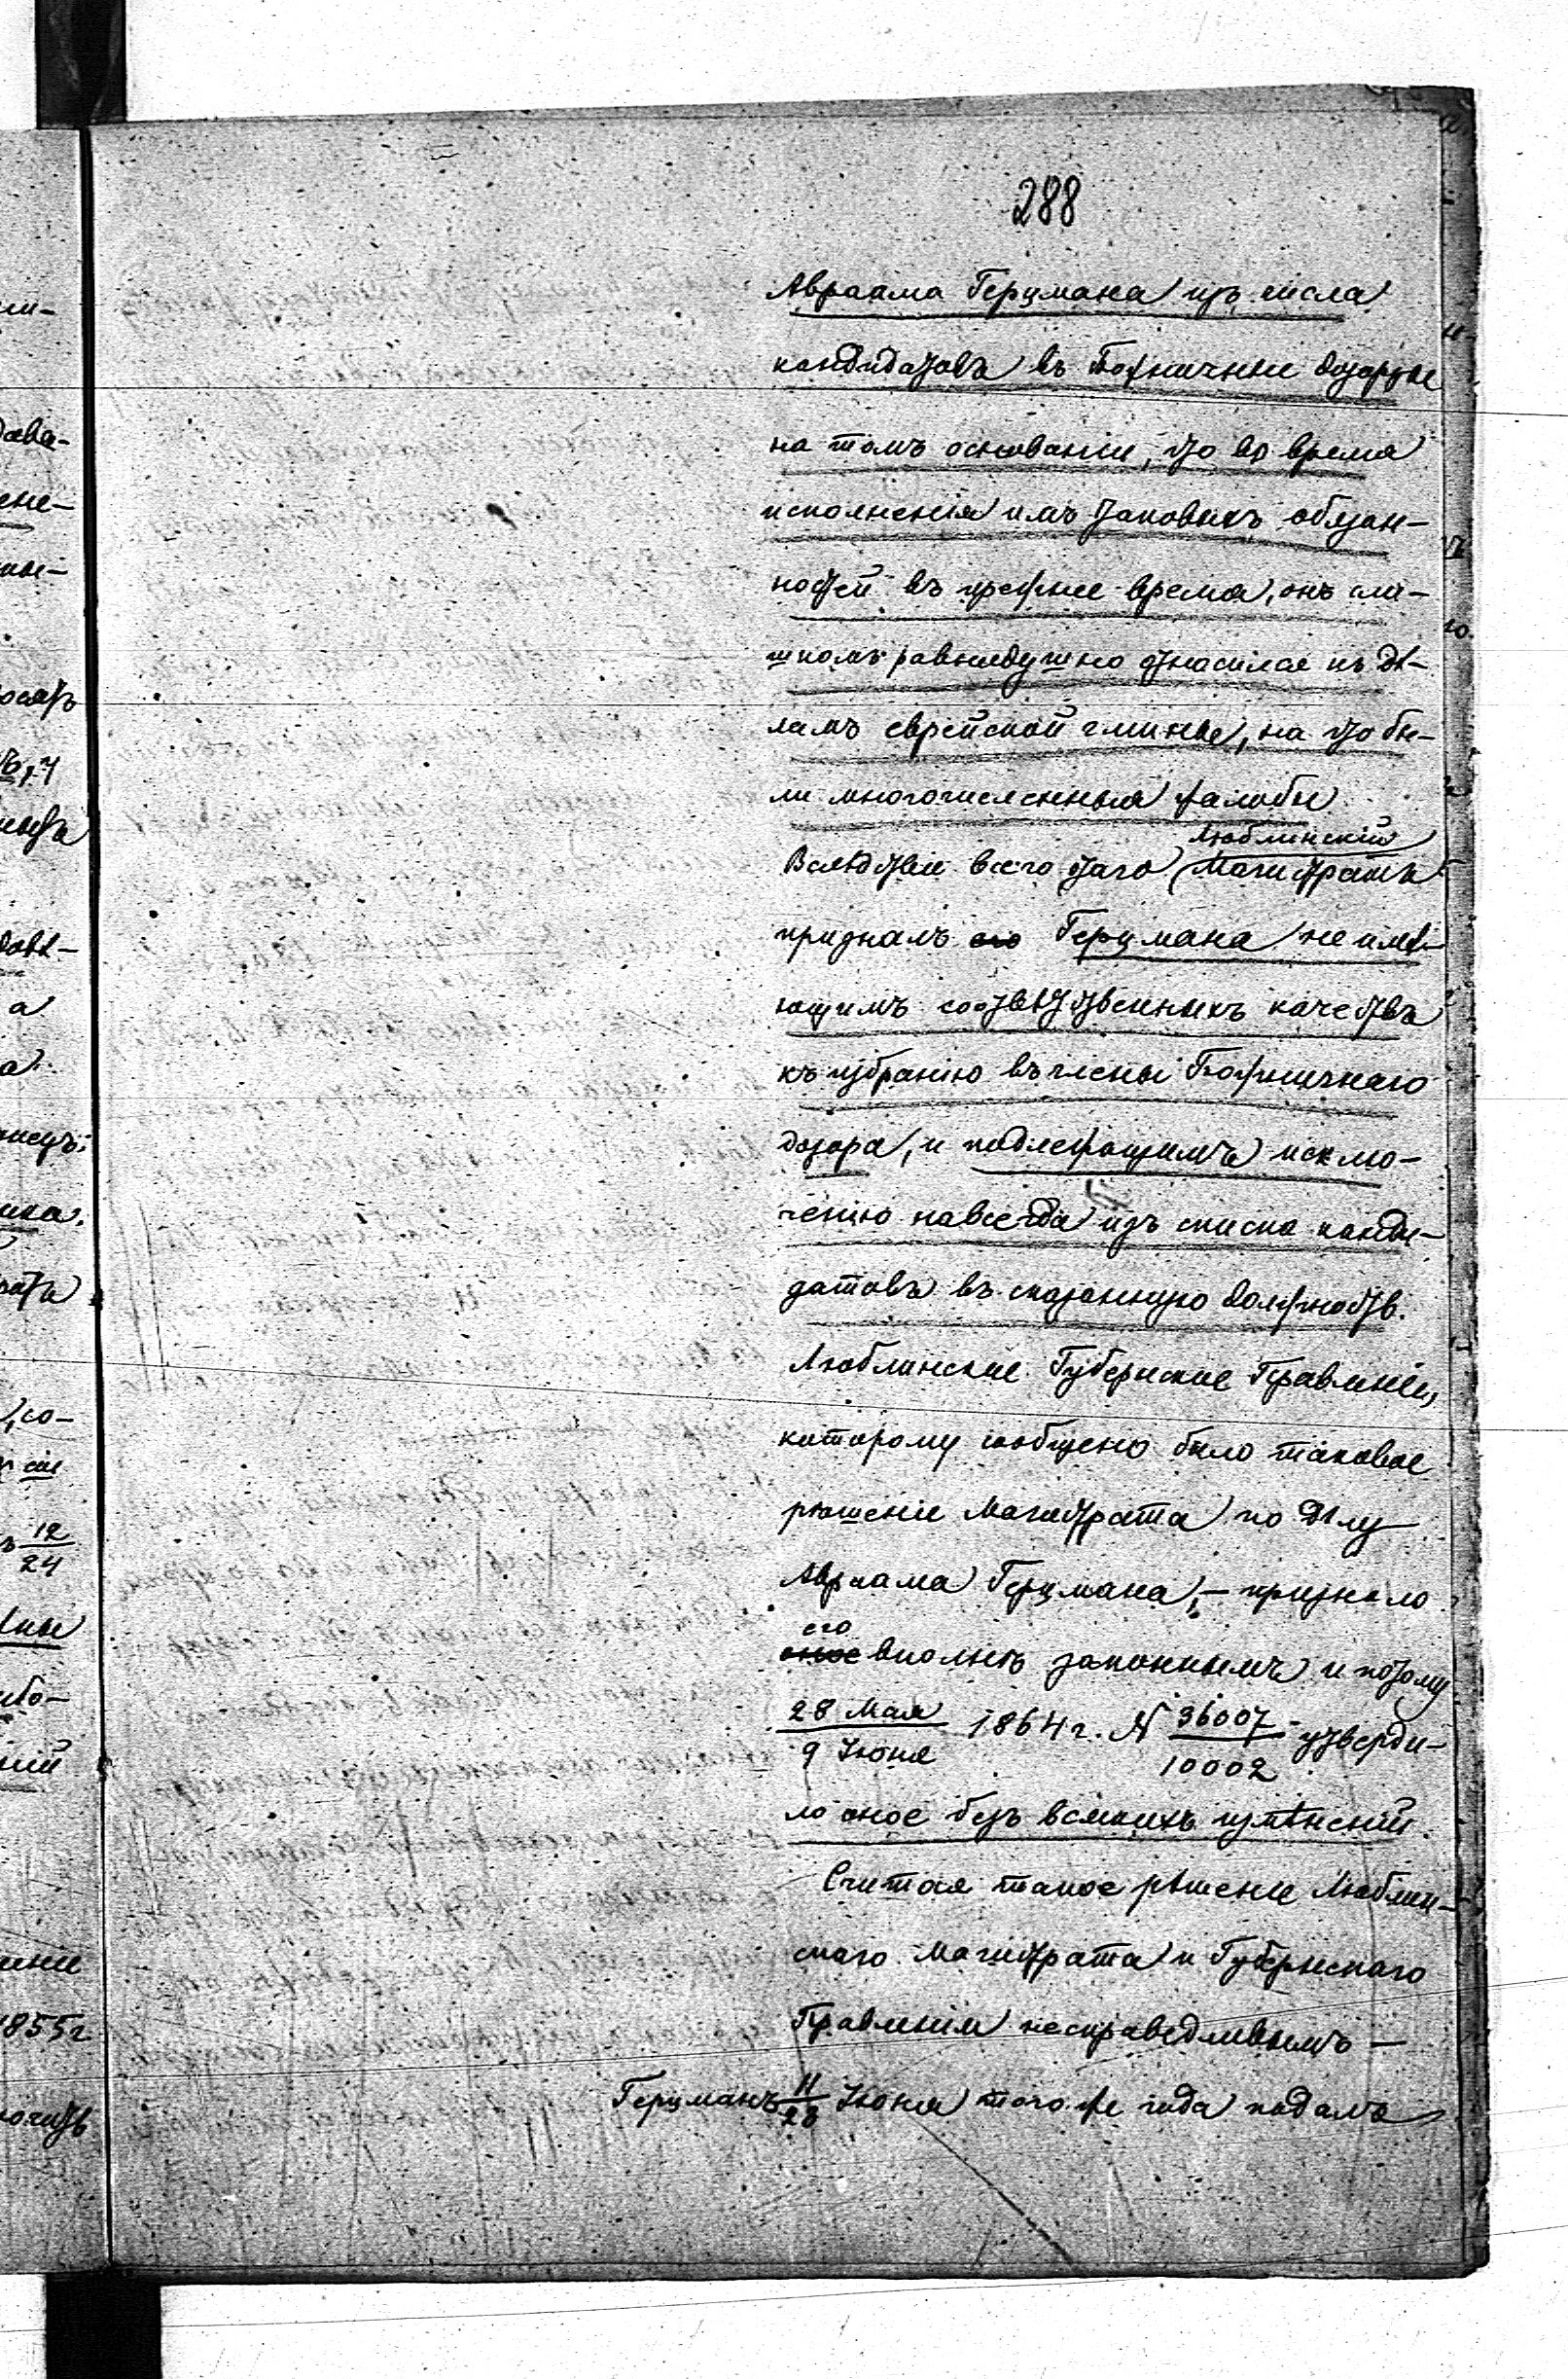 288
Авраама Герцмана изъ числа
кандидатовъ въ Божничные дозорцы
на томъ основаніи, что во время
исполненія имъ таковыхъ обязан-
ностей въ прежнее время, онъ сли-
шкомъ равнодушно относился къ дѣ-
ламъ еврейской гмины, на что бы-
ли многочисленныя жалобы.
Люблинскій
Вслѣдствіе всего этого Магистратъ
призналъ его Герцмана не имѣ-
ющимъ соотвѣтственныхъ качествъ
къ избранію въ члены Божничнаго
дозора, и подлежащимъ исклю-
ченію навсегда изъ списка канди-
датовъ въ сказанную должность.
Люблинское Губернское Правленіе,
которому сообщено было таковое
рѣшеніе Магистрата по дѣлу
Авраама Герцмана, – признало
его
оное вполнѣ законнымъ и потому
28 Мая / 9 Іюня 1864 г. № 36007 / 10002 утверди-
ло оное безъ всякихъ измѣненій.
Считая такое рѣшеніе Люблин-
скаго Магистрата и Губернскаго
Правленія несправедливымъ –
Герцманъ 11/23 Іюня того же года подалъ
ли-
дава-
ене-
ны-
а
а
ика.
со-
12/24
ибо-
1855 г